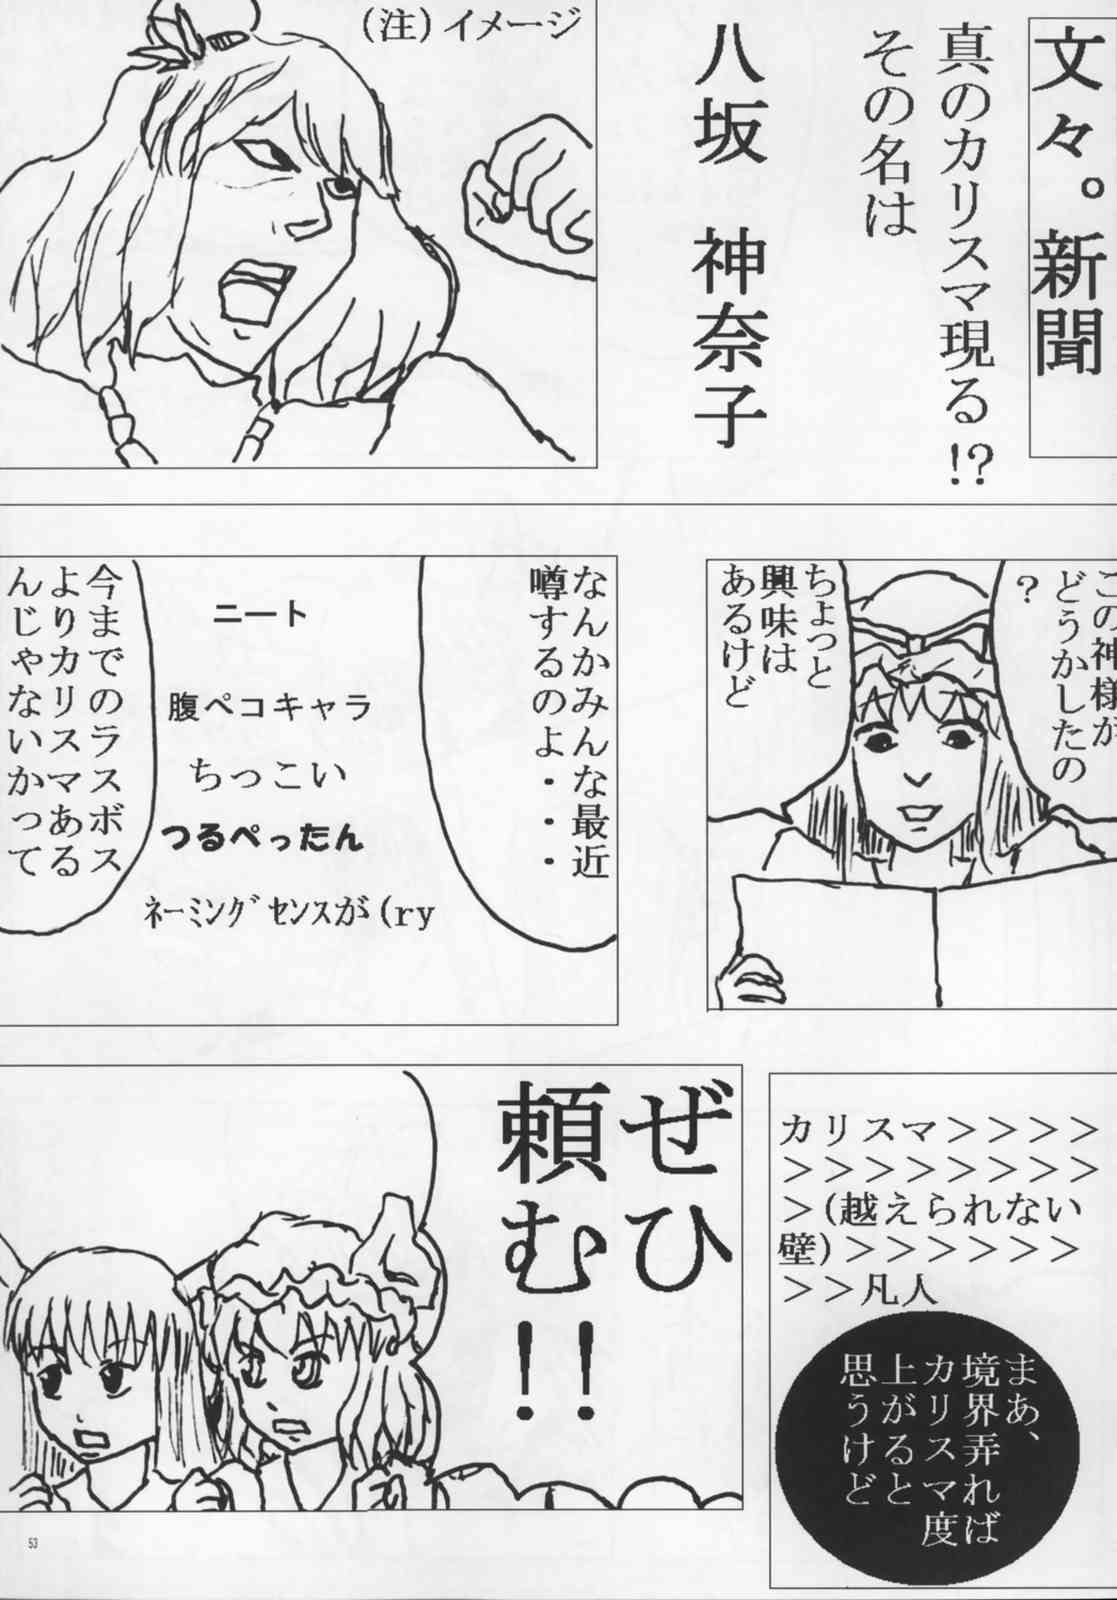 文々。新聞
真のカリスマ現る!?
その名は
八坂 神奈子
(注)イメージ
この神様が
どうかしたの
?
ちょっと
興味は
あるけど
なんかみんな最近
噂するのよ・・・
ニート
腹ペコキャラ
ちっこい
つるぺったん
ﾈｰﾐﾝｸﾞｾﾝｽが(ry
今までのラスボス
よりカリスマある
んじゃないかって
カリスマ＞＞＞＞
＞＞＞＞＞＞＞＞
＞(越えられない
壁)＞＞＞＞＞＞
＞＞凡人
まあ、
境界弄れば
カリスマ度
上がると
思うけど
ぜひ
頼む!!
53